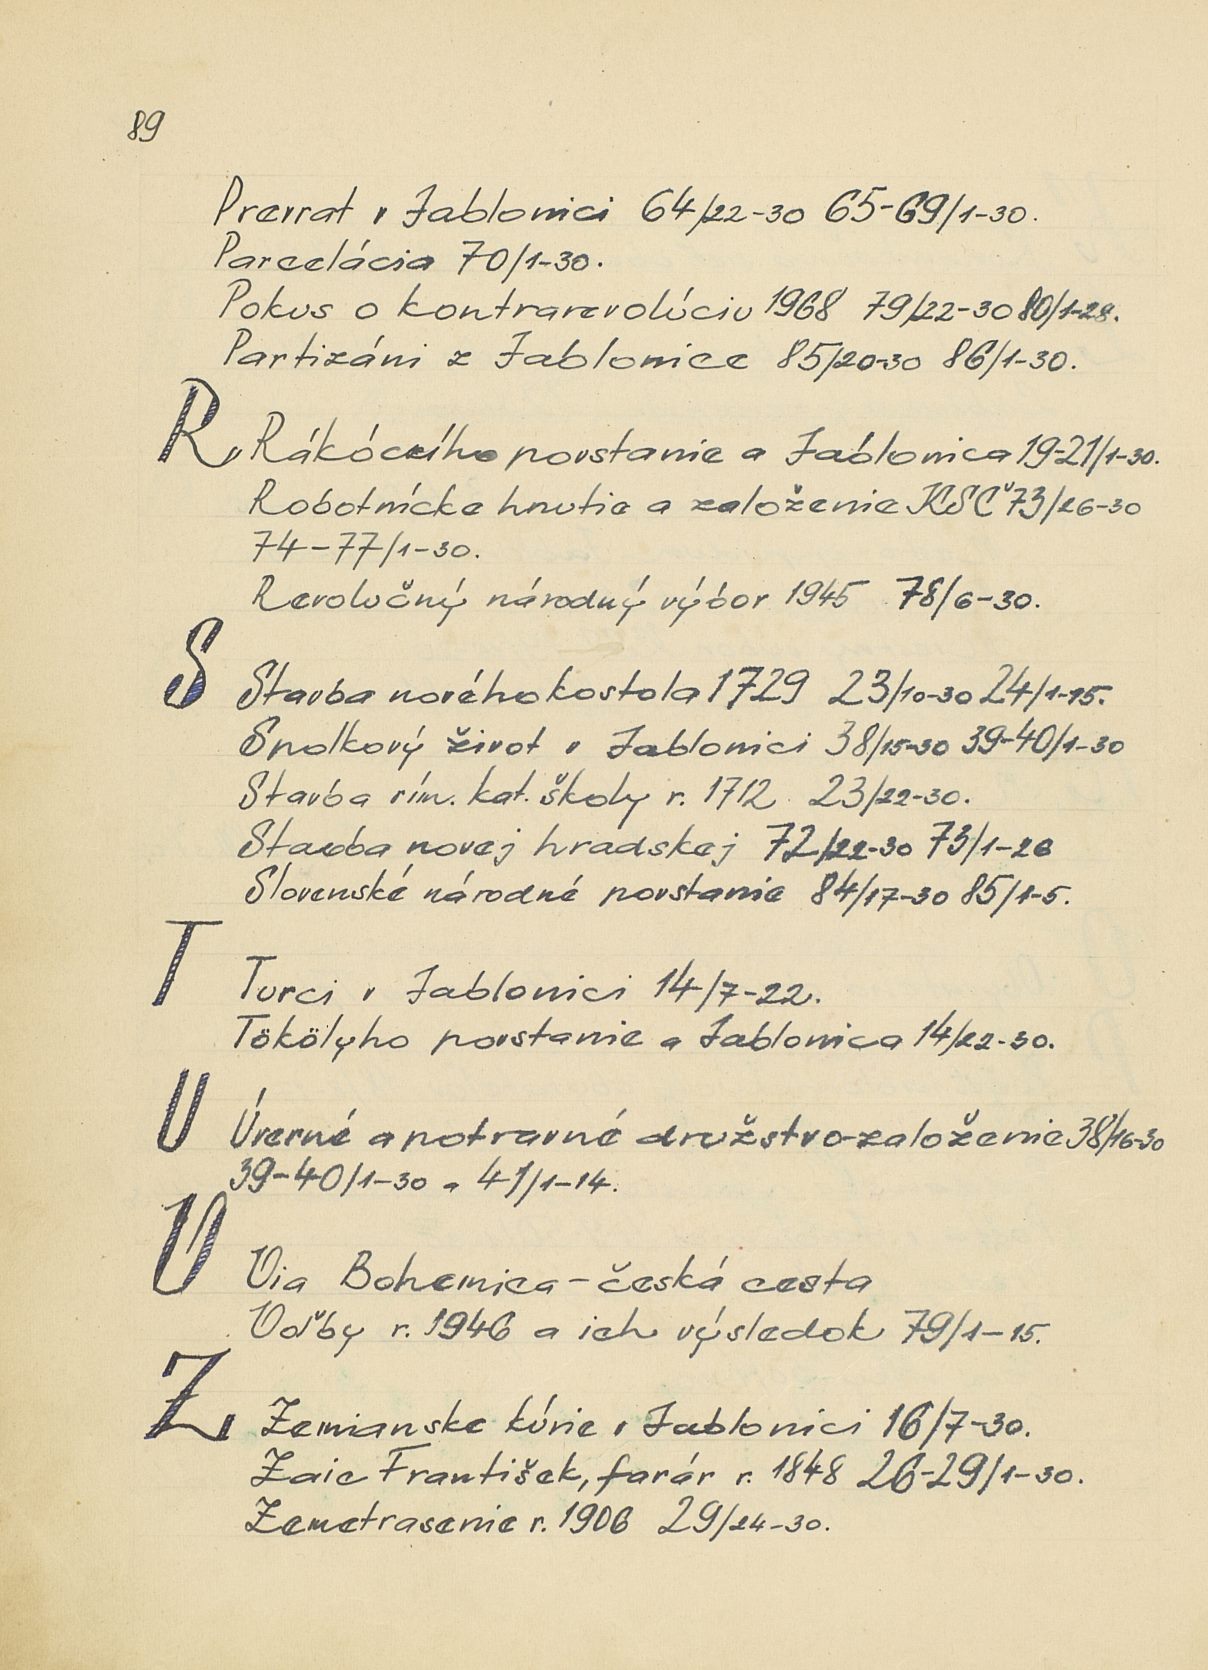 89
Prevrat v Jablonici 64/22-30 65-69/1-30.
Parcelácia 70/1-30.
Pokus o kontrarevolúciu 1968 79/22-30 80/1-28.
Partizáni z Jablonice 85/20-30 86/1-30.
R Rákócziho povstanie a Jablonica 19-21/1-30.
Robotnícke hnutie a založenie KSČ 73/26-30
74-77/1-30.
Revolučný národný výbor 1945 78/6-30.
S Stavba nového kostola 1729 23/10-30 24/1-15.
Spolkový život v Jablonici 38/15-30 39-40/1-30
Stavba rím. kat. školy r. 1712 23/22-30.
Stavba novej hradskej 72/22-30 73/1-26
Slovenské národné povstanie 84/17-30 85/1-5.
T Turci v Jablonici 14/7-22.
Tökölyho povstanie a Jablonica 14/22-30.
U Úverné a potravné družstvo-založenie 38/16-30
39-40/1-30 a 41/1-14.
V Via Bohemica - česká cesta
Voľby r. 1946 a ich výsledok 79/1-15.
Z Zemianske kúrie v Jablonici 16/7-30.
Zaic František, farár r. 1848 26-29/1-30.
Zemetrasenie r. 1906 29/24-30.